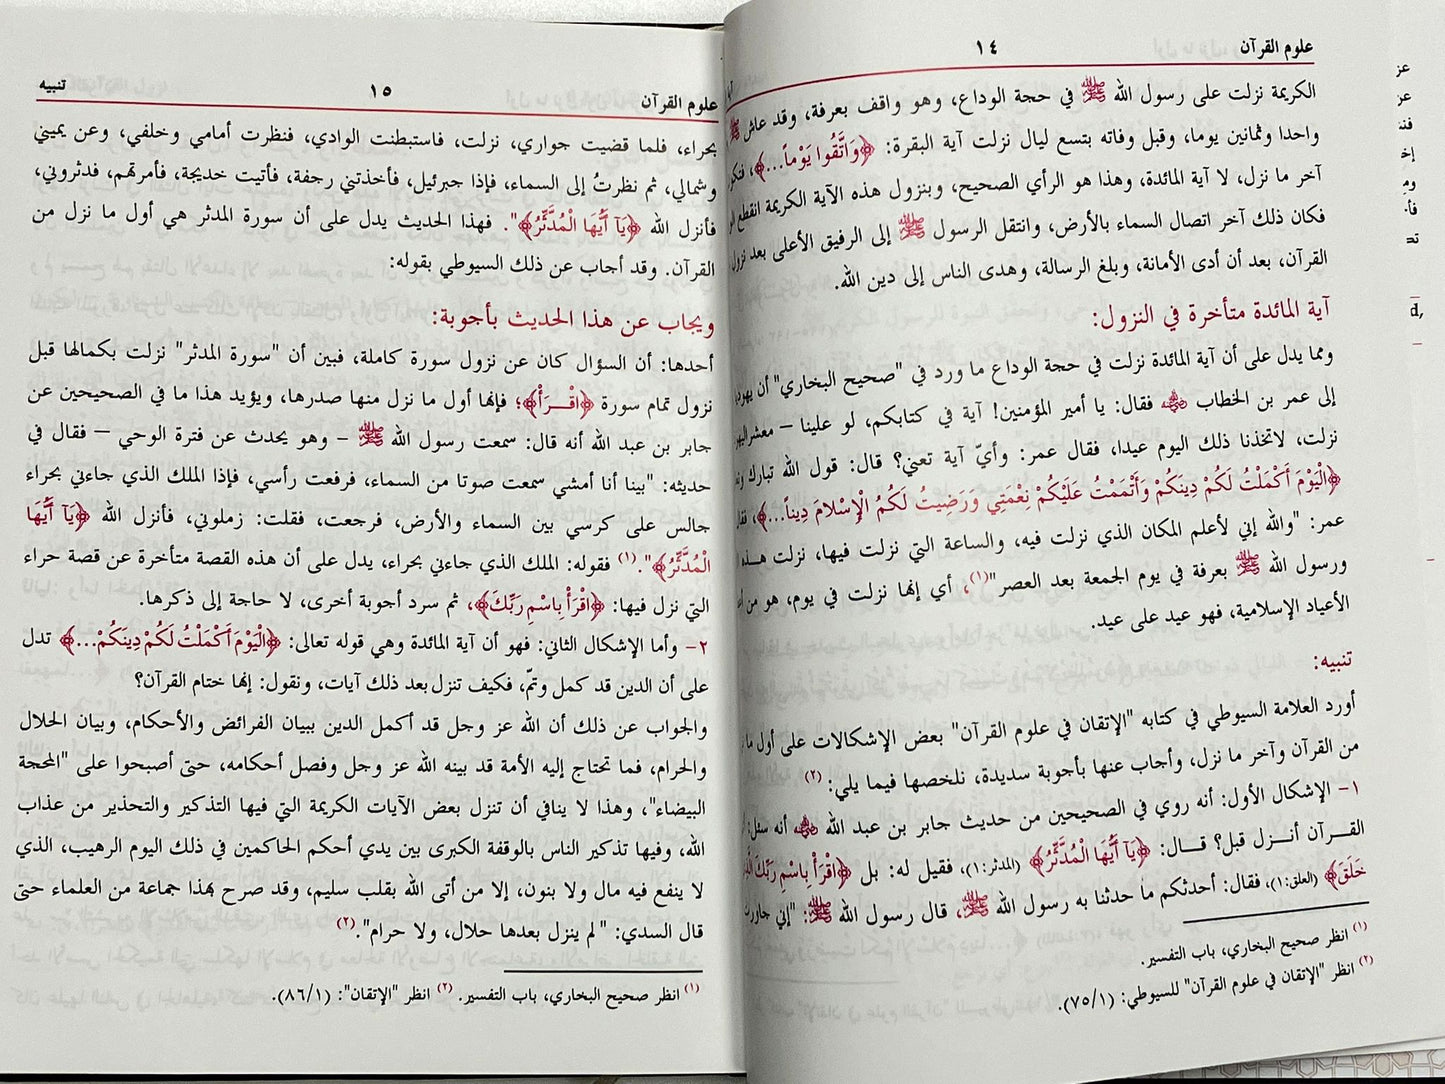 علوم القرآن ١٤
الكريمة نزلت على رسول الله ﷺ في حجة الوداع، وهو واقف بعرفة، وقد عاش
واحدا وثمانين يوما، وقبل وفاته بتسع ليال نزلت آية البقرة: ﴿وَاتَّقُوا يَوْماً...﴾،
آخر ما نزل، لا آية المائدة، وهذا هو الرأي الصحيح، وبنزول هذه الآية الكريمة انقطع
فكان ذلك آخر اتصال السماء بالأرض، وانتقل الرسول ﷺ إلى الرفيق الأعلى بعد نزول
القرآن، بعد أن أدى الأمانة، وبلغ الرسالة، وهدى الناس إلى دين الله.
آية المائدة متأخرة في النزول:
ومما يدل على أن آية المائدة نزلت في حجة الوداع ما ورد في "صحيح البخاري" أن
إلى عمر بن الخطاب ؓ فقال: يا أمير المؤمنين! آية في كتابكم، لو علينا – معشر
نزلت، لاتخذنا ذلك اليوم عيدا، فقال عمر: وأيّ آية تعني؟ قال: قول الله تبارك
﴿الْيَوْمَ أَكْمَلْتُ لَكُمْ دِينَكُمْ وَأَتْمَمْتُ عَلَيْكُمْ نِعْمَتِي وَرَضِيتُ لَكُمُ الْإِسْلَامَ دِيناً...﴾،
عمر: "والله إني لأعلم المكان الذي نزلت فيه، والساعة التي نزلت فيها، نزلت هذه
ورسول الله ﷺ بعرفة في يوم الجمعة بعد العصر"(١)، أي إنها نزلت في يوم، هو من
الأعياد الإسلامية، فهو عيد على عيد.
تنبيه:
أورد العلامة السيوطي في كتابه "الإتقان في علوم القرآن" بعض الإشكالات على أول ما
من القرآن وآخر ما نزل، وأجاب عنها بأجوبة سديدة، نلخصها فيما يلي: (٢)
١- الإشكال الأول: أنه روي في الصحيحين من حديث جابر بن عبد الله ؓ أنه سئل:
القرآن أنزل قبل؟ قال: ﴿يَآ أَيُّهَا الْمُدَّثِّرُ﴾ (المدثر:١)، فقيل له: بل ﴿اقْرَأْ بِاسْمِ رَبِّكَ
خَلَقَ﴾ (العلق:١)، فقال: أحدثكم ما حدثنا به رسول الله ﷺ، قال رسول الله ﷺ: "إني جاورت
(١) انظر صحيح البخاري، باب التفسير.
(٢) انظر "الإتقان في علوم القرآن" للسيوطي: (٧٥/١).
علوم القرآن ١٥ تنبيه
بحراء، فلما قضيت جواري، نزلت، فاستبطنت الوادي، فنظرت أمامي وخلفي، وعن يميني
وشمالي، ثم نظرتُ إلى السماء، فإذا جبرئيل، فأخذتني رجفة، فأتيت خديجة، فأمرتهم، فدثروني،
فأنزل الله ﴿يَآ أَيُّهَا الْمُدَّثِّرُ﴾". فهذا الحديث يدل على أن سورة المدثر هي أول ما نزل من
القرآن. وقد أجاب عن ذلك السيوطي بقوله:
ويجاب عن هذا الحديث بأجوبة:
أحدها: أن السؤال كان عن نزول سورة كاملة، فبين أن "سورة المدثر" نزلت بكمالها قبل
نزول تمام سورة ﴿اقْرَأْ﴾؛ فإنها أول ما نزل منها صدرها، ويؤيد هذا ما في الصحيحين عن
جابر بن عبد الله أنه قال: سمعت رسول الله ﷺ – وهو يحدث عن فترة الوحي – فقال في
حديثه: "بينا أنا أمشي سمعت صوتا من السماء، فرفعت رأسي، فإذا الملك الذي جاءني بحراء
جالس على كرسي بين السماء والأرض، فرجعت، فقلت: زملوني، فأنزل الله ﴿يَآ أَيُّهَا
الْمُدَّثِّرُ﴾".(١) فقوله: الملك الذي جاءني بحراء، يدل على أن هذه القصة متأخرة عن قصة حراء
التي نزل فيها: ﴿اقْرَأْ بِاسْمِ رَبِّكَ﴾، ثم سرد أجوبة أخرى، لا حاجة إلى ذكرها.
٢- وأما الإشكال الثاني: فهو أن آية المائدة وهي قوله تعالى: ﴿الْيَوْمَ أَكْمَلْتُ لَكُمْ دِينَكُمْ...﴾ تدل
على أن الدين قد كمل وتمّ، فكيف تنزل بعد ذلك آيات، ونقول: إنها ختام القرآن؟
والجواب عن ذلك أن الله عز وجل قد أكمل الدين ببيان الفرائض والأحكام، وبيان الحلال
والحرام، فما تحتاج إليه الأمة قد بينه الله عز وجل وفصل أحكامه، حتى أصبحوا على "المحجة
البيضاء"، وهذا لا ينافي أن تنزل بعض الآيات الكريمة التي فيها التذكير والتحذير من عذاب
الله، وفيها تذكير الناس بالوقفة الكبرى بين يدي أحكم الحاكمين في ذلك اليوم الرهيب، الذي
لا ينفع فيه مال ولا بنون، إلا من أتى الله بقلب سليم، وقد صرح بهذا جماعة من العلماء حتى
قال السدي: "لم ينزل بعدها حلال، ولا حرام".(٢)
(١) انظر صحيح البخاري، باب التفسير. (٢) انظر "الإتقان": (٨٦/١).